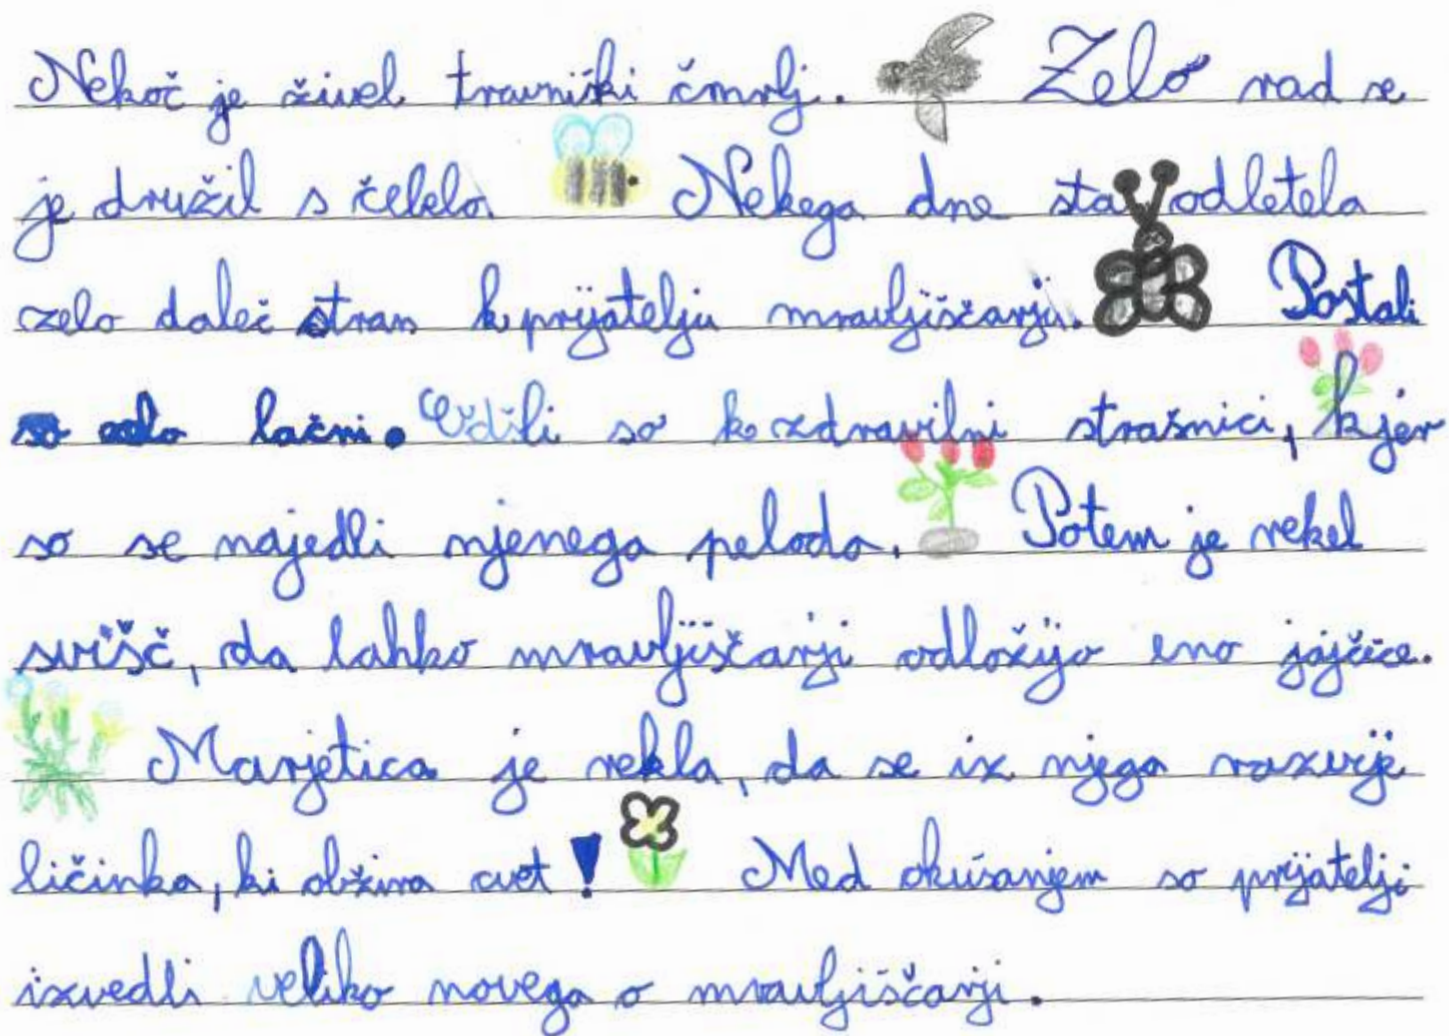 Nekoč je živel travniški čmrlj. Zelo rad se
je družil s čebelo. Nekega dne sta odletela
zelo daleč stran k prijatelju mravljiščarju. Postali
so zelo lačni. Odšli so k zdravilni strašnici, kjer
so se najedli njenega peloda. Potem je rekel
svišč, da lahko mravljiščarji odložijo eno jajčice.
Marjetica je rekla, da se iz njega razvije
ličinka, ki obžira cvet! Med okušanjem so prijatelji
izvedli veliko novega o mravljiščarji.